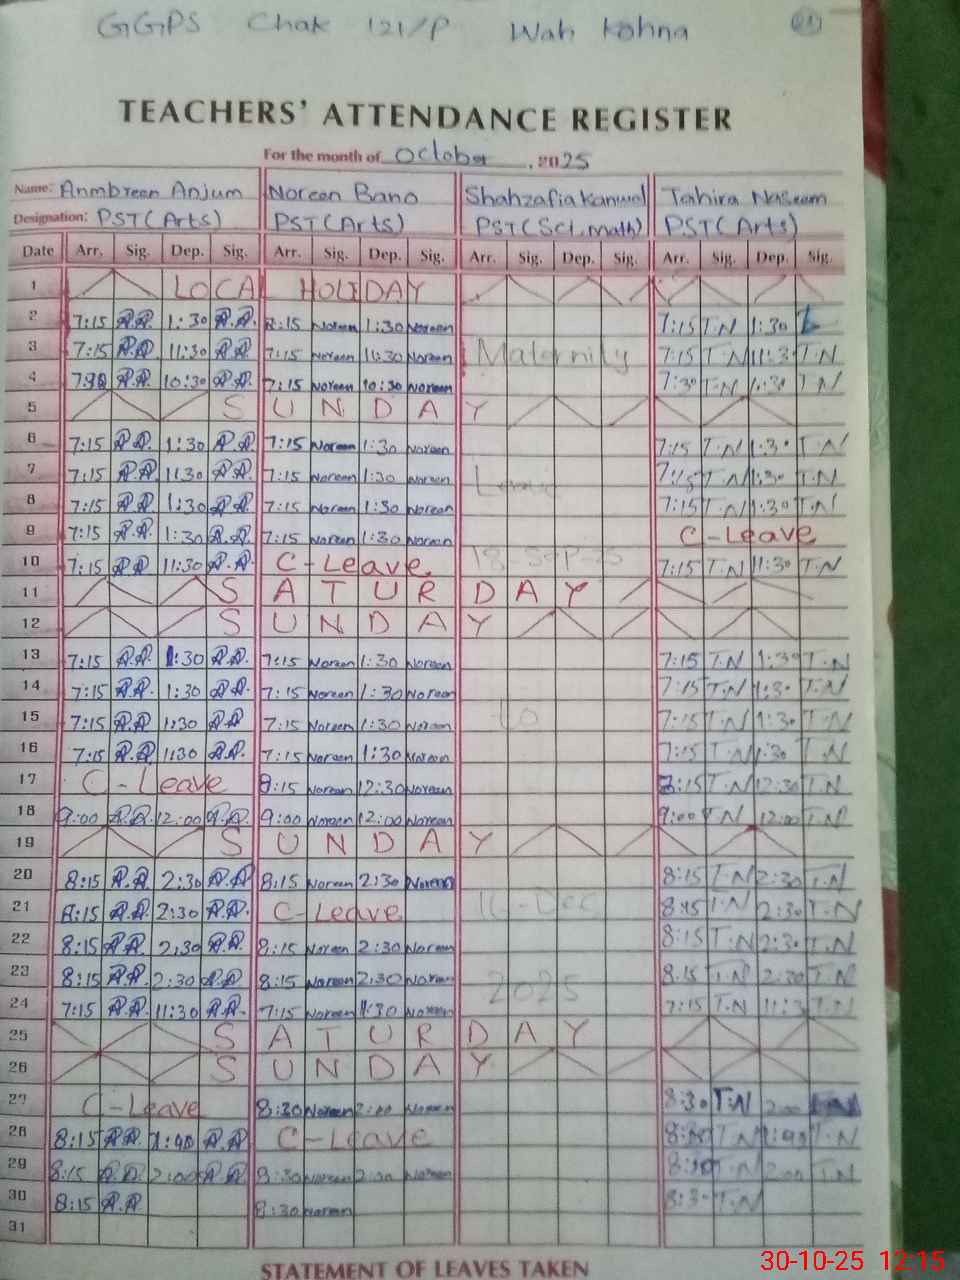 GGPS Chak 121/P Wah Kohna 21
TEACHERS' ATTENDANCE REGISTER
For the month of October, 2025
Name: Anmbreen Anjum Noreen Bano Shahzafia Kanwal Tahira Naseem
Designation: PST(Arts) PST(Arts) PST(Sci, math) PST(Arts)
Date Arr. Sig. Dep. Sig. Arr. Sig. Dep. Sig. Arr. Sig. Dep. Sig. Arr. Sig. Dep. Sig.
1 LOCAL HOLIDAY
2 7:15 A.A. 1:30 A.A. 8:15 Noreen 1:30 Noreen 7:15 T.N 1:30
3 7:15 A.A 11:30 A.A 7:15 Noreen 11:30 Noreen Maternity 7:15 T.N 11:3 T.N
4 A.A. 10:30 A.A 7:15 Noreen 10:30 Noreen 7:30 T.N T.N
5 SUNDAY
6 7:15 A.A. 1:30 A.A 7:15 Noreen 1:30 Noreen 7:15 T.N 1:30 T.N
7 7:15 A.A. 1130 A.A 7:15 Noreen 1:30 Noreen Leave 7:15 T.N 1:30 T.N
8 7:15 A.A. 1:30 A.A 7:15 Noreen 1:30 Noreen 7:15 T.N 1:30 T.N
9 7:15 A.A 1:30 A.A. 7:15 Noreen 1:30 Noreen C-Leave
10 7:15 A.A 11:30 A.A. C-Leave 18-Sep-25 7:15 T.N 11:30 T.N
11 SATURDAY
12 SUNDAY
13 7:15 A.A. 1:30 A.A. 7:15 Noreen 1:30 Noreen 7:15 T.N 1:30 T.N
14 7:15 A.A. 1:30 A.A. 7:15 Noreen 1:30 Noreen 7:15 T.N 1:30 T.N
15 7:15 A.A. 1:30 A.A 7:15 Noreen 1:30 Noreen to 7:15 T.N 1:30 T.N
16 7:15 A.A. 1:30 A.A. 7:15 Noreen 1:30 Noreen 7:15 T.N 1:30 T.N
17 C-Leave 8:15 Noreen 12:30 Noreen 8:15 T.N 12:30 T.N
18 9:00 A.A. 12:00 A.A. 9:00 Noreen 12:00 Noreen 9:00 T.N 12:00 T.N
19 SUNDAY
20 8:15 A.A. 2:30 A.A 8:15 Noreen 2:30 Noreen 8:15 T.N 2:30 T.N
21 8:15 A.A. 2:30 A.A. C-Leave 16-Dec 8:15 T.N 2:30 T.N
22 8:15 A.A. 2:30 A.A. 8:15 Noreen 2:30 Noreen 8:15 T.N 2:30 T.N
23 8:15 A.A. 2:30 A.A 8:15 Noreen 2:30 Noreen 2025 8:15 T.N 2:30 T.N
24 7:15 A.A. 11:30 A.A. 7:15 Noreen 11:30 Noreen 7:15 T.N 11:3 T.N
25 SATURDAY
26 SUNDAY
27 C-Leave 8:30 Noreen 2:00 Noreen 8:30 T.N 2:00
28 8:15 A.A. A.A C-Leave T.N T.N
29 8:15 A.A. 2:00 A.A 8:30 Noreen 2:00 Noreen T.N 2:00 T.N
30 8:15 A.A 8:30 Noreen 8:30 T.N
31
STATEMENT OF LEAVES TAKEN
30-10-25 12:15